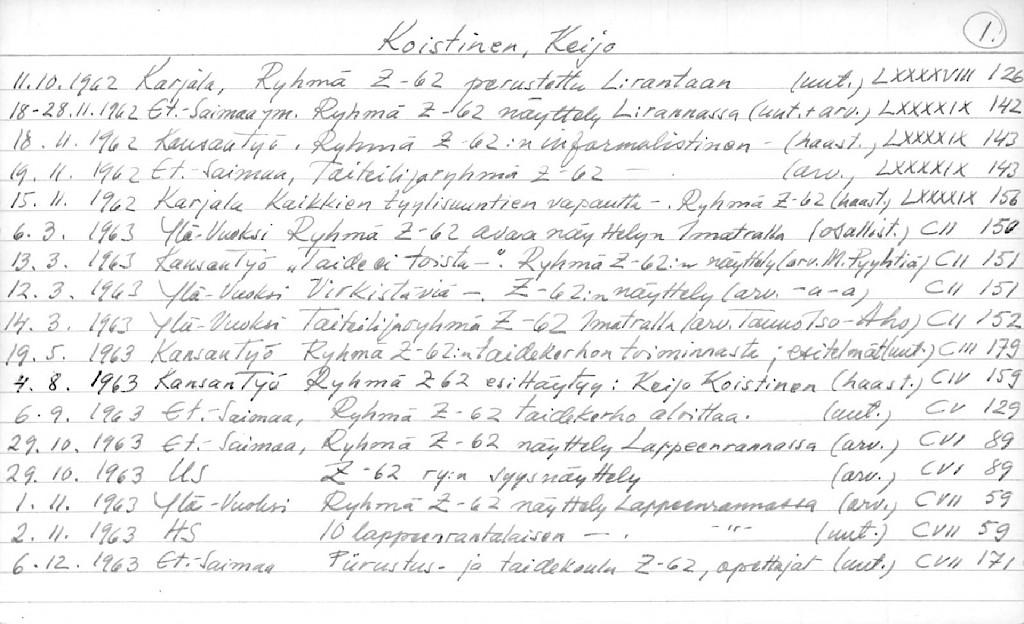 1.
Koistinen, Keijo
11.10.1962 Karjala, Ryhmä Z-62 perustettu L:rantaan (uut.) LXXXXVIII 126
18-28.11.1962 Et.-Saimaa ym. Ryhmä Z-62 näyttely L:rannassa (uut.+arv.) LXXXXIX 142
18.11.1962 Kansan Työ. Ryhmä Z-62:n informalistinen - (haast., LXXXXIX 143
19.11.1962 Et.-Saimaa, Taiteilijaryhmä Z-62 - . (arv., LXXXXIX 143
15.11.1962 Karjala Kaikkien tyylisuuntien vapautta -. Ryhmä Z-62 (haast, LXXXXIX 156
6.3. 1963 Ylä-Vuoksi Ryhmä Z-62 avaa näyttelyn Imatralla (osallist.) CII 150
13.3. 1963 Kansan Työ "Taide ei toista -". Ryhmä Z-62:n näyttely (arv. M. Pyyhtiä) CII 151
12.3. 1963 Ylä-Vuoksi Virkistäviä -. Z-62:n näyttely (arv. -a-a) CII 151
14.3. 1963 Ylä-Vuoksi Taiteilijaryhmä Z-62 Imatralla (arv. Tauno Iso-Aho) CII 152
19.5. 1963 Kansan Työ Ryhmä Z-62:n taidekerhon toiminnasta; esitelmät (uut.) CIII 179
4.8. 1963 Kansan Työ Ryhmä Z62 esittäytyy: Keijo Koistinen (haast.) CIV 159
6.9. 1963 Et.-Saimaa, Ryhmä Z-62 taidekerho aloittaa. (uut.) CV 129
29.10.1963 Et.-Saimaa, Ryhmä Z-62 näyttely Lappeenrannassa (arv.) CVI 89
29.10.1963 US Z-62 ry:n syysnäyttely (arv.) CVI 89
1.11.1963 Ylä-Vuoksi Ryhmä Z-62 näyttely Lappeenrannassa (arv.) CVII 59
2.11.1963 HS 10 lappeenrantalaisen - . -"- (uut.) CVII 59
6.12.1963 Et.-Saimaa Piirustus- ja taidekoulu Z-62, opettajat (uut.) CVII 171